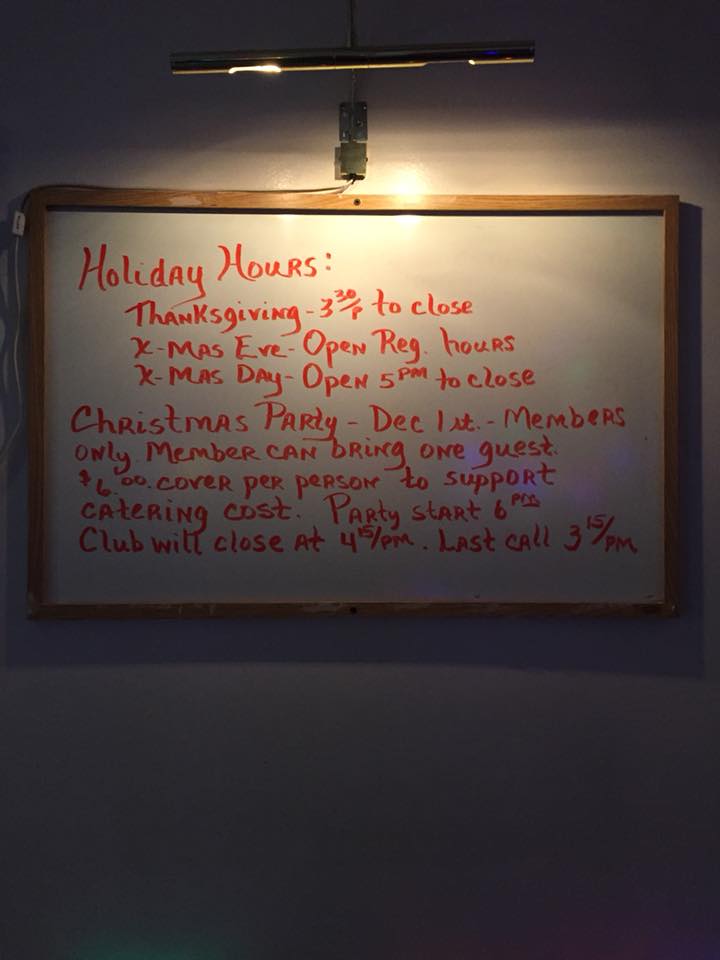 Holiday Hours:
Thanksgiving - 3 30/P to close
X-Mas Eve - Open Reg. hours
X-Mas Day - Open 5 PM to close
Christmas Party - Dec 1st. - Members
only. Member can bring one guest.
$6.00. cover per person to support
catering cost. Party start 6 PM
Club will close at 4 15/PM. Last call 3 15/PM